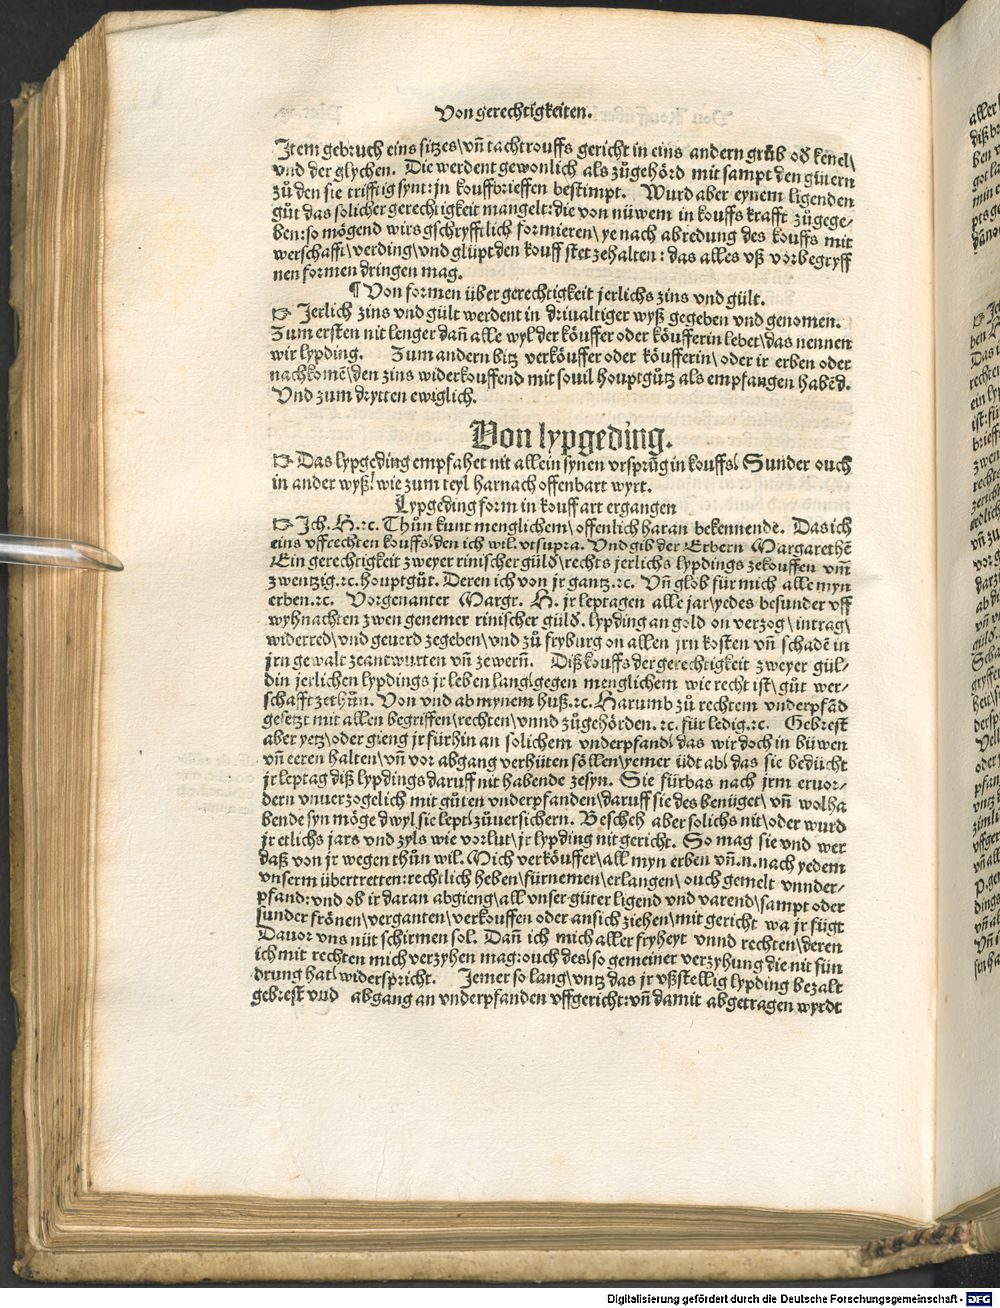 Von gerechtigkeiten.
Item gebruch eins sitzes\ vn̄ tachtrouffs gericht in eins andern grůb od̕ kenel\
vnd der glychen. Die werdent gewonlich als zůgehörd mit sampt den gütern
zů den sie trifftig synt: jn kouffbrieffen bestimpt. Wurd aber eynem ligenden
gůt das solicher gerechtigkeit mangelt: die von nüwem in kouffs krafft zůgege⸗
ben: so mögend wirs gschryfftlich formieren\ ye nach abredung des kouffs mit
werschafft\ verding\ vnd glüpt den kouff stet zehalten: das alles vß vorbegryff
nen formen dringen mag.
¶ Von formen über gerechtigkeit jerlichs zins vnd gült.
☞ Jerlich zins vnd gült werdent in driualtiger wyß gegeben vnd genomen.
Zum ersten nit lenger dan̄ alle wyl der köuffer oder köufferin lebet\ das nennen
wir lypding. Zum andern bitz verköuffer oder köufferin\ oder ir erben oder
nachkomē\ den zins widerkouffend mit souil houptgůtz als empfangen habēd.
Vnd zum drytten ewiglich.
Von lypgeding.
☞ Das lypgeding empfahet nit allein synen vrsprūg in kouffs\ Sunder ouch
in ander wyß\ wie zum teyl harnach offenbart wyrt.
Lypgeding form in kouff art ergangen
☞ Ich. H. ꝛc. Thůn kunt menglichem\ offenlich haran bekennende. Das ich
eins vffrechten kouffs\ den ich wil. vtsupra. Vnd gib der Erbern Margarethē
Ein gerechtigkeit zweyer rinischer guld̕\ rechts jerlichs lypdings zekouffen vm̄
zwentzig. ꝛc. houptgůt. Deren ich von jr gantz. ꝛc. Vn̄ glob für mich alle myn
erben. ꝛc. Vorgenanter Margr. H. jr leptagen alle jar\ yedes besunder vff
wyhnachten zwen genemer rinischer guld̕. lypding an gold on verzog\ intrag\
widerred\ vnd geuerd zegeben\ vnd zů fryburg on allen jrn kosten vn̄ schadē in
jrn gewalt zeantwurten vn̄ zewern̄. Diß kouffs der gerechtigkeit zweyer gül⸗
din jerlichen lypdings jr leben lang\ gegen menglichem wie recht ist\ gůt wer⸗
schafft zethůn. Von vnd ab mynem huß. ꝛc. Harumb zů rechtem vnderpfād
gesetzt mit allen begriffen\ rechten\ vnnd zůgehörden. ꝛc. für ledig. ꝛc. Gebrest
aber yetz\ oder gieng jr fürhin an solichem vnderpfand\ das wir doch in büwen
vn̄ eeren halten\ vn̄ vor abgang verhüten söllen\ yemer üdt ab\ das sie bedücht
jr leptag diß lypdings daruff nit habende zesyn. Sie fürbas nach jrm eruor⸗
dern vnuerzogelich mit gůten vnderpfanden\ daruff sie des benüget\ vn̄ wol ha
bende syn möge dwyl sie lept\ zůuersichern. Bescheh aber solichs nit\ oder wurd
jr etlichs jars vnd zyls wie vorlut\ jr lypding nit gericht. So mag sie vnd wer
daß von jr wegen thůn wil. Mich verköuffer\ all myn erben vn̄. n. nach yedem
vnserm übertretten: rechtlich heben\ fürnemen\ erlangen\ ouch gemelt vnnder⸗
pfand: vnd ob ir daran abgieng\ all vnser güter ligend vnd varend\ sampt oder
sunder frönen\ verganten\ verkouffen oder an sich ziehen\ mit gericht wa jr fügt
Dauor vns nüt schirmen sol. Dan̄ ich mich aller fryheyt vnnd rechten\ deren
ich mit rechten mich verzyhen mag: ouch des\ so gemeiner verzyhung die nit sün
drung hat\ widerspricht. Jemer so lang\ vntz das jr vßstellig lypding bezalt
gebrest vnd abgang an vnderpfanden vffgericht: vn̄ damit abgetragen wyrdt
Digitalisierung gefördert durch die Deutsche Forschungsgemeinschaft - DFG